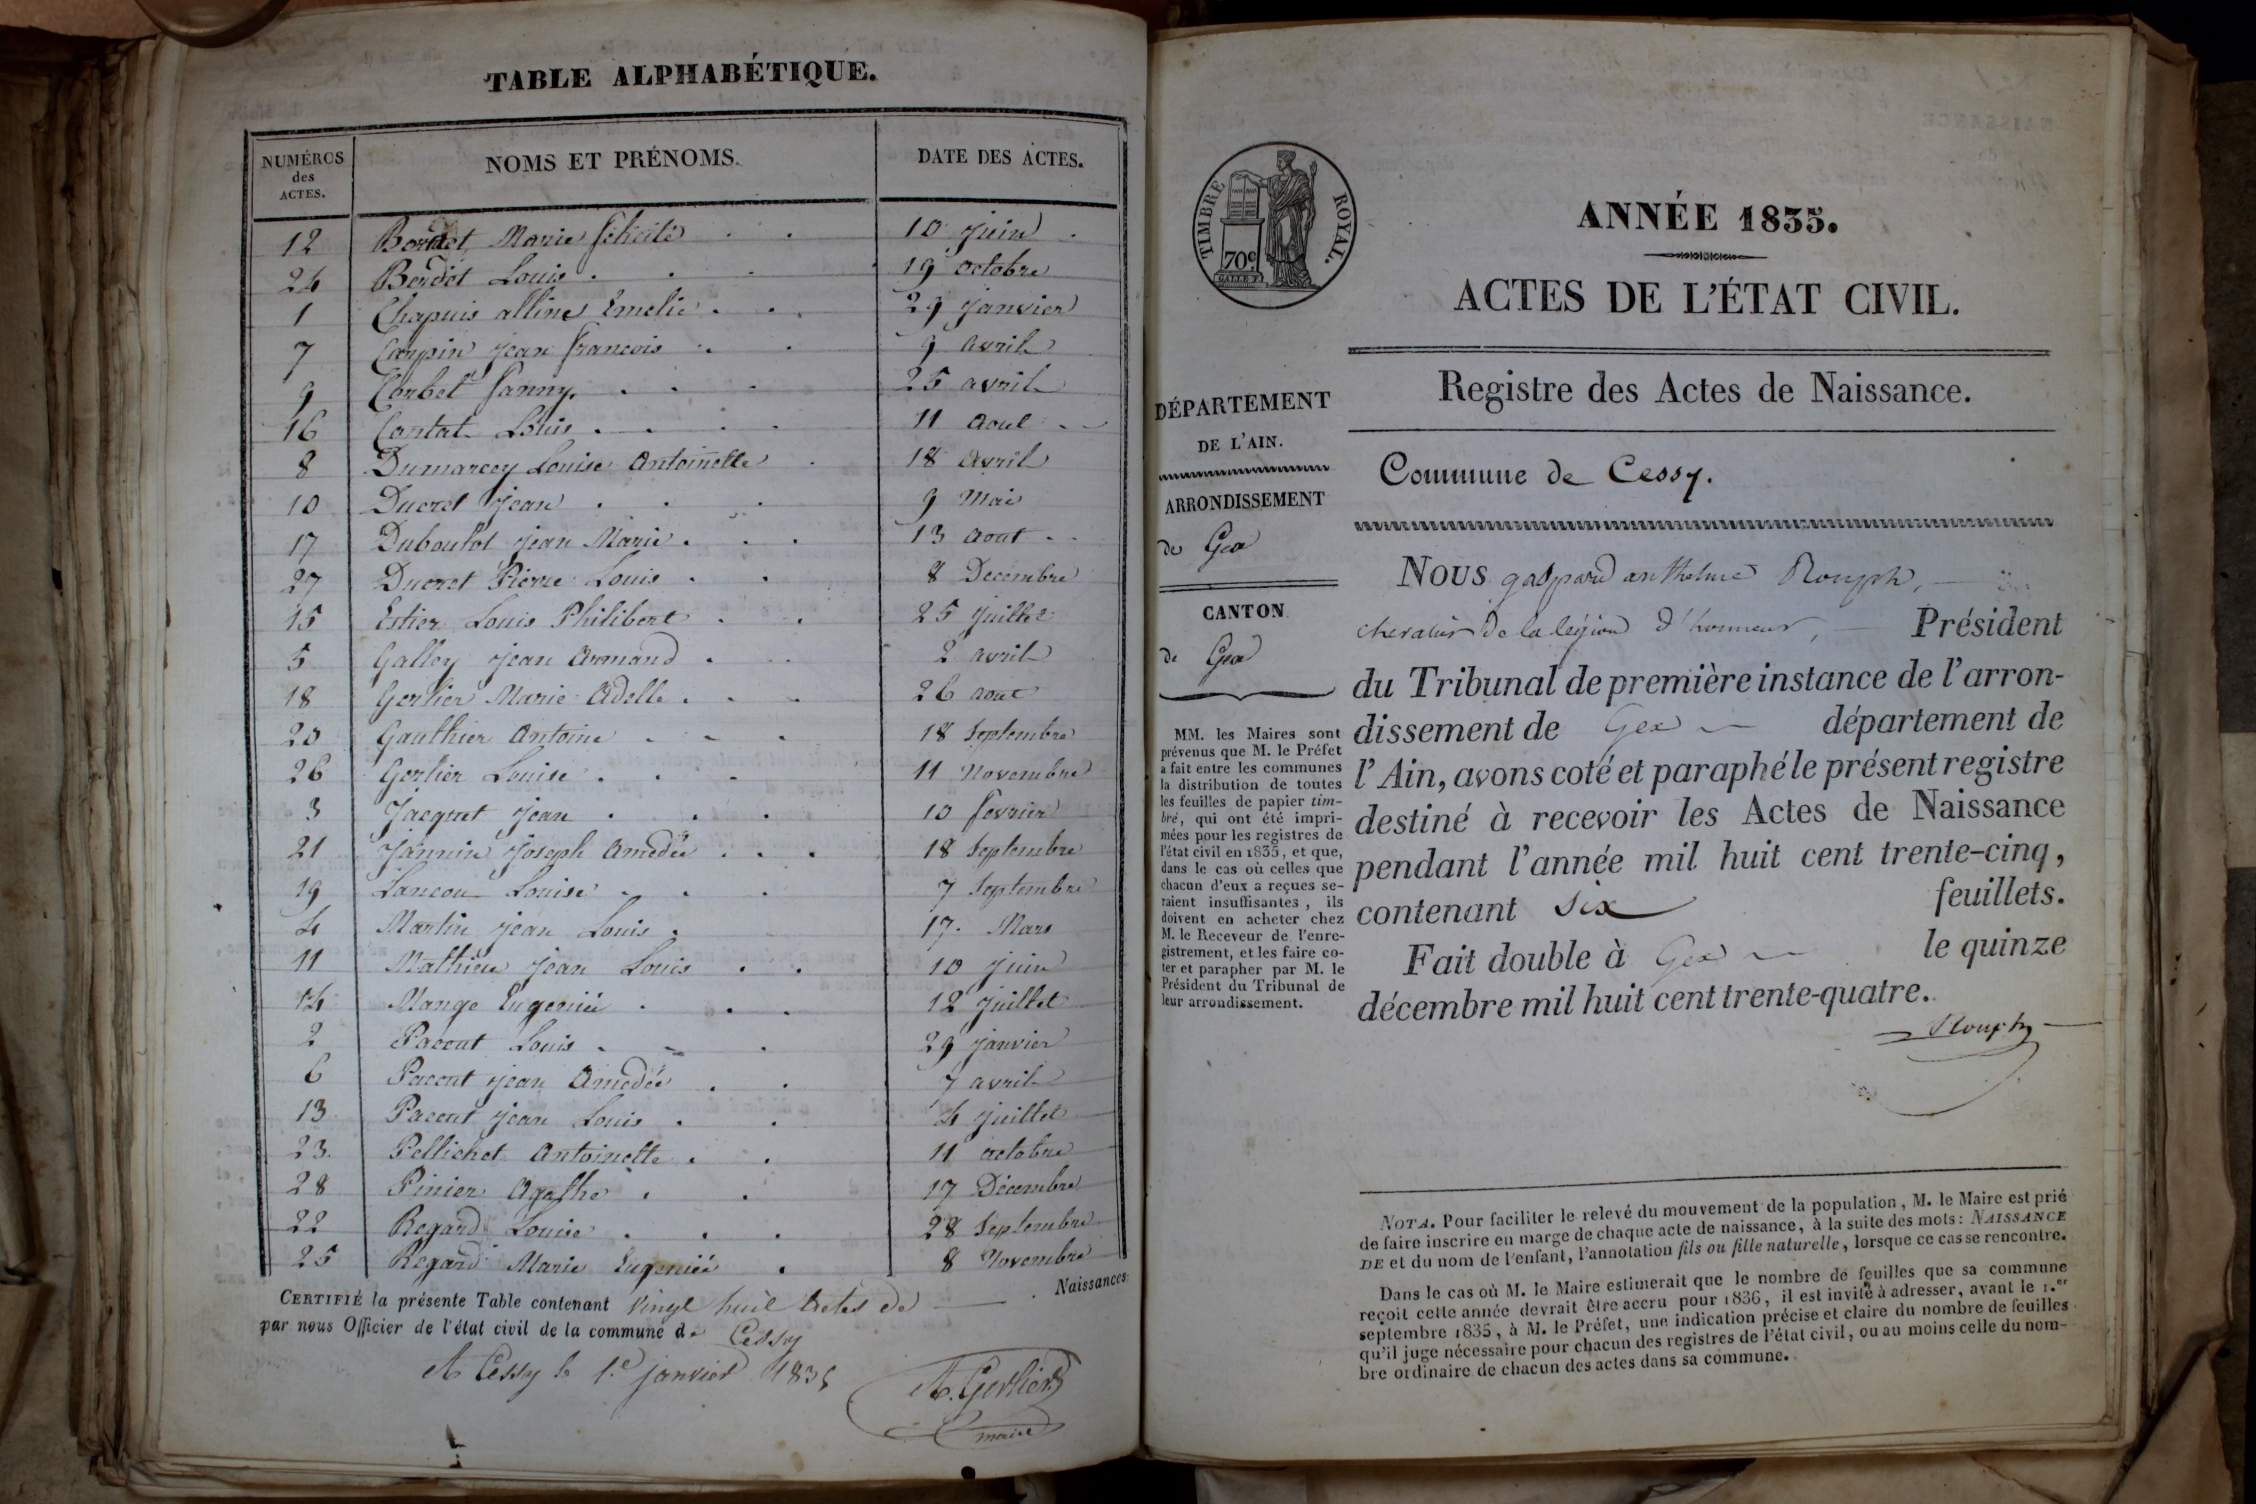 TABLE ALPHABÉTIQUE.
NUMÉROS des ACTES. NOMS ET PRÉNOMS. DATE DES ACTES.
12 Bordet Marie félicité 10 juin
24 Berdet Louis 19 octobre
1 Chapuis alline Emelie 29 janvier
7 Carpin jean francois 9 avril
9 Corbet fanny 25 avril
16 Contat Louis 11 aout
8 Dumarcey Louise Antoinette 18 avril
10 Ducret jean 9 Mai
17 Duboulot jean Marie 13 aout
27 Ducret Pierre Louis 8 Decembre
15 Estier Louis Philibert 25 juillet
5 Galley jean Armand 2 avril
18 Gerlier Marie Adelle 26 aout
20 Gauthier Antoine 18 Septembre
26 Gerlier Louise 11 Novembre
3 Jacquet jean 10 fevrier
21 Jannin joseph Amedée 18 Septembre
19 Lancon Louise 7 Septembre
4 Martin jean Louis 17 Mars
11 Mathieu jean Louis 10 juin
14 Mange Eugenié 12 juillet
2 Pacout Louis 29 janvier
6 Pacout jean Amedée 7 avril
13 Pacout jean Louis 4 juillet
23 Pellichet Antoinette 11 octobre
28 Pinier Agathe 17 Décembre
22 Regard Louise 28 Septembre
25 Regard Marie Eugenié 8 Novembre
CERTIFIÉ la présente Table contenant vingt huit Actes de Naissances
par nous Officier de l'état civil de la commune de Cessy
A Cessy le 1er janvier 1835
A. Gerlier
maire
TIMBRE ROYAL.
70c
ANNÉE 1835.
ACTES DE L'ÉTAT CIVIL.
Registre des Actes de Naissance.
DÉPARTEMENT
DE L'AIN.
ARRONDISSEMENT
de Gex
CANTON
de Gex
MM. les Maires sont
prévenus que M. le Préfet
a fait entre les communes
la distribution de toutes
les feuilles de papier tim-
bré, qui ont été impri-
mées pour les registres de
l'état civil en 1835, et que,
dans le cas où celles que
chacun d'eux a reçues se-
raient insuffisantes, ils
doivent en acheter chez
M. le Receveur de l'enre-
gistrement, et les faire co-
ter et parapher par M. le
Président du Tribunal de
leur arrondissement.
Commune de Cessy.
Nous gaspard anthelme Rouph,
chevalier de la légion d'honneur, Président
du Tribunal de première instance de l'arron-
dissement de Gex département de
l'Ain, avons coté et paraphé le présent registre
destiné à recevoir les Actes de Naissance
pendant l'année mil huit cent trente-cinq,
contenant six feuillets.
Fait double à Gex le quinze
décembre mil huit cent trente-quatre.
Rouph
NOTA. Pour faciliter le relevé du mouvement de la population, M. le Maire est prié
de faire inscrire en marge de chaque acte de naissance, à la suite des mots: NAISSANCE
DE et du nom de l'enfant, l'annotation fils ou fille naturelle, lorsque ce cas se rencontre.
Dans le cas où M. le Maire estimerait que le nombre de feuilles que sa commune
reçoit cette année devrait être accru pour 1836, il est invité à adresser, avant le 1.er
septembre 1835, à M. le Préfet, une indication précise et claire du nombre de feuilles
qu'il juge nécessaire pour chacun des registres de l'état civil, ou au moins celle du nom-
bre ordinaire de chacun des actes dans sa commune.